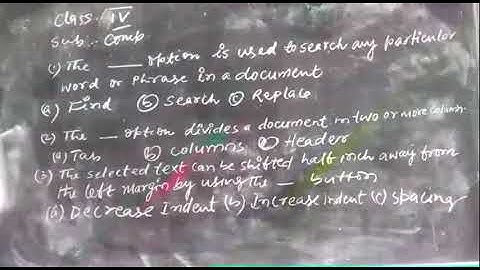 Class. IV
Sub.. Comp
(1) The ___ option is used to search any particular
word or phrase in a document
(a) Find (b) Search (c) Replace
(2) The __ option divides a document in two or more column
(a) Tab (b) columns (c) Header
(3) The selected text can be shifted half inch away from
the left margin by using the __ button
(a) Decrease Indent (b) Increase indent (c) spacing